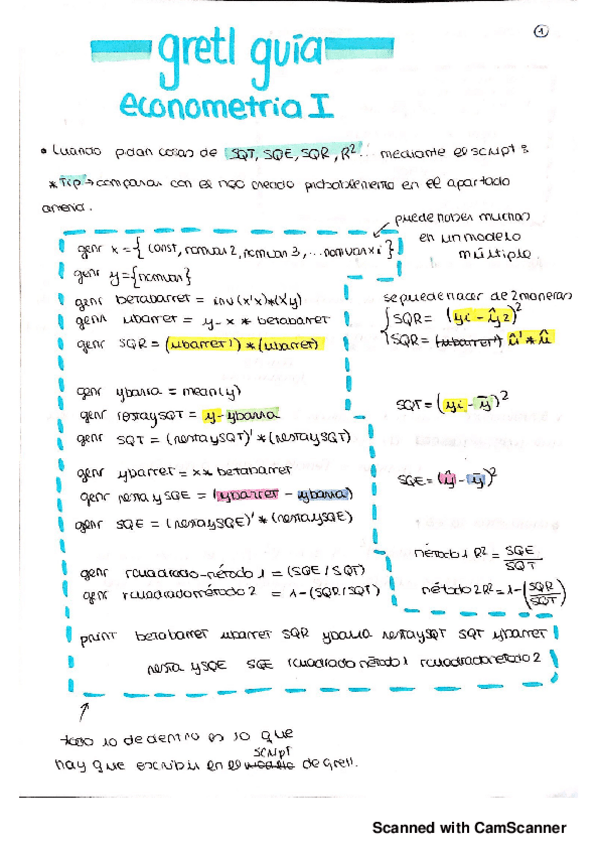 1
gretl guía
econometria I
• Cuando pidan cosas de SQT, SQE, SQR, R²... mediante el script:
* Tip → comparar con el mco creado probablemente en el apartado
anterior.
puede haber muchas
en un modelo
múltiple.
genr x = {const, nomvar2, nomvar3, ...nomvarxi}
genr y = {nomvar}
genr betabarret = inv(x'x)*(x'y)
genr ubarret = y - x * betabarret
genr SQR = (ubarret')*(ubarret)
se puede hacer de 2 maneras
SQR = (yi - ŷi)²
SQR = (ubarret) û' * û
genr ybarra = mean(y)
genr restaySQT = y - ybarra
genr SQT = (restaySQT)' * (restaySQT)
SQT = (yi - ȳ)²
genr ybarret = x * betabarret
genr restaySQE = (ybarret - ybarra)
genr SQE = (restaySQE)' * (restaySQE)
SQE = (ŷ - ȳ)²
genr rcuadrado-método1 = (SQE/SQT)
genr rcuadradométodo2 = 1-(SQR/SQT)
método1 R² = SQE/SQT
método2 R² = 1-(SQR/SQT)
print betabarret ubarret SQR ybarra restaySQT SQT ybarret
resta ySQE SQE rcuadradométodo1 rcuadradométodo2
todo lo de dentro es lo que
hay que escribir en el script de Gretl.
Scanned with CamScanner